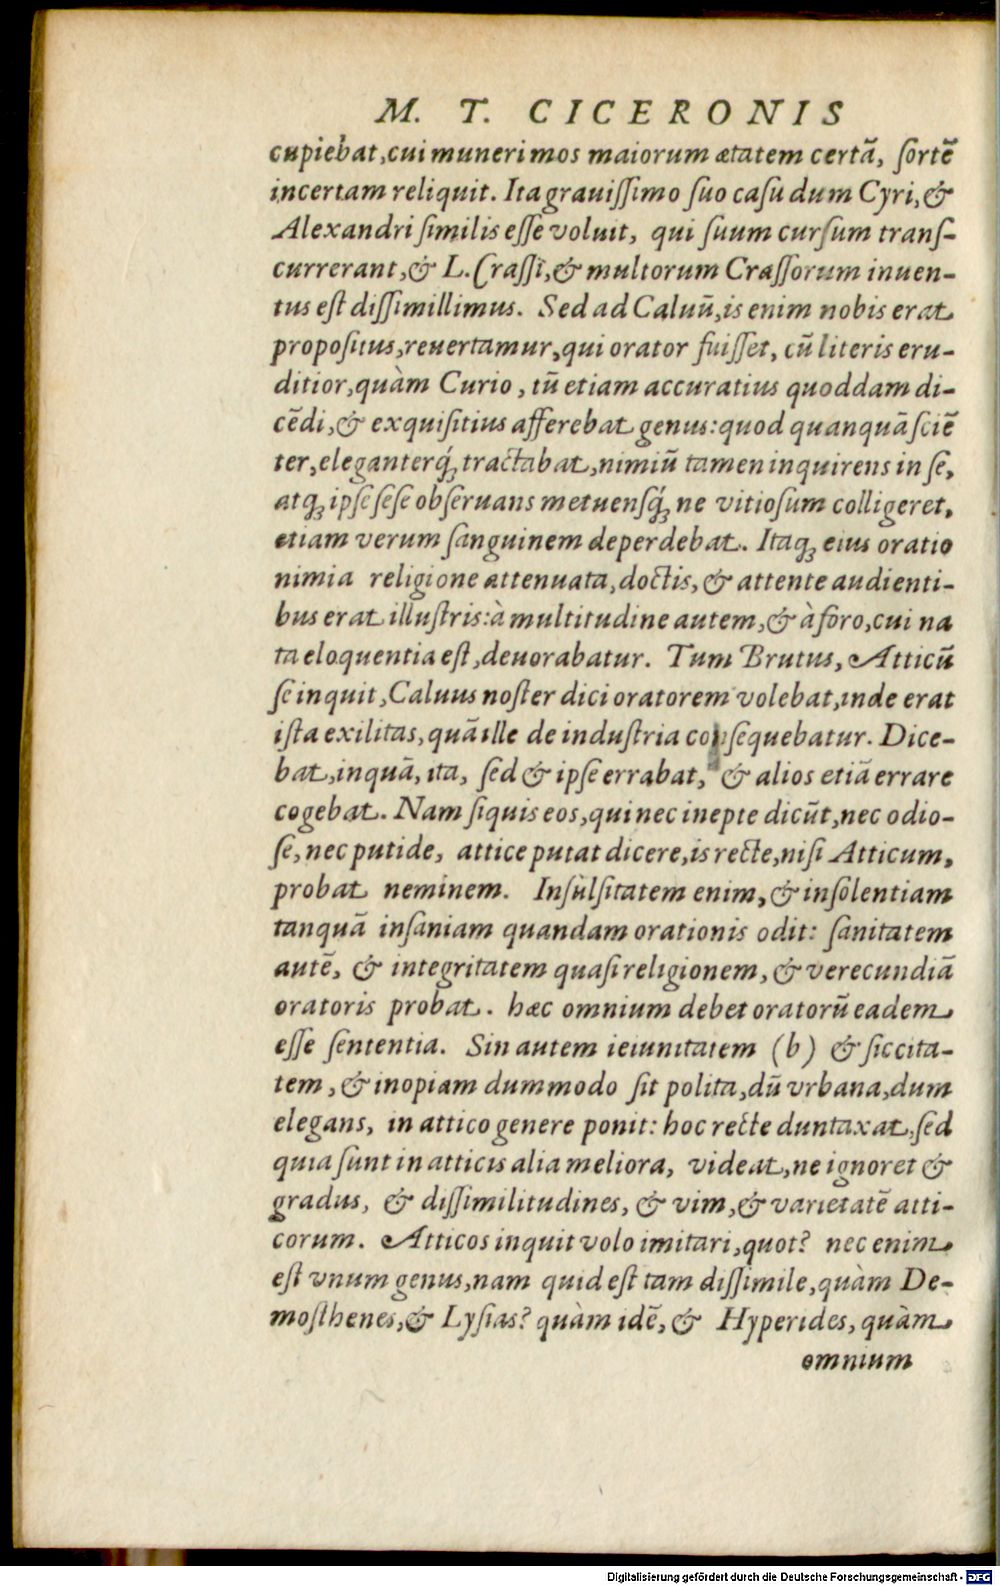 M. T. CICERONIS
cupiebat,cui muneri mos maiorum ætatem certã, ſortẽ
incertam reliquit. Ita grauiſſimo ſuo caſu dum Cyri,&
Alexandri ſimilis eſſe voluit, qui ſuum curſum tranſ-
currerant,& L. Craſſi,& multorum Craſſorum inuen-
tus eſt diſſimillimus. Sed ad Caluũ,is enim nobis erat
propoſitus,reuertamur,qui orator fuiſſet, cũ literis eru-
ditior,quàm Curio, tũ etiam accuratius quoddam di-
cẽdi,& exquiſitius afferebat genus:quod quanquã ſciẽ
ter,eleganterq́; tractabat,nimiũ tamen inquirens in ſe,
atq; ipſe ſeſe obſeruans metuenſq́; ne vitioſum colligeret,
etiam verum ſanguinem deperdebat. Itaq; eius oratio
nimia religione attenuata,doctis,& attente audienti-
bus erat illuſtris:à multitudine autem,& à foro,cui na
ta eloquentia eſt,deuorabatur. Tum Brutus, Atticũ
ſe inquit,Caluus noſter dici oratorem volebat,inde erat
iſta exilitas,quã ille de induſtria conſequebatur. Dice-
bat,inquã, ita, ſed & ipſe errabat, & alios etiã errare
cogebat. Nam ſiquis eos,qui nec inepte dicũt,nec odio-
ſe,nec putide, attice putat dicere,is recte,niſi Atticum,
probat neminem. Inſulſitatem enim,& inſolentiam
tanquã inſaniam quandam orationis odit: ſanitatem
autẽ, & integritatem quaſi religionem,& verecundiã
oratoris probat. hæc omnium debet oratorũ eadem
eſſe ſententia. Sin autem ieiunitatem (b) & ſiccita-
tem,& inopiam dummodo ſit polita,dũ vrbana,dum
elegans, in attico genere ponit: hoc recte duntaxat,ſed
quia ſunt in atticis alia meliora, videat,ne ignoret &
gradus, & diſſimilitudines, & vim,& varietatẽ atti-
corum. Atticos inquit volo imitari,quot? nec enim
eſt vnum genus,nam quid eſt tam diſſimile,quàm De-
moſthenes,& Lyſias? quàm idẽ, & Hyperides, quàm
omnium
Digitalisierung gefördert durch die Deutsche Forschungsgemeinschaft - DFG